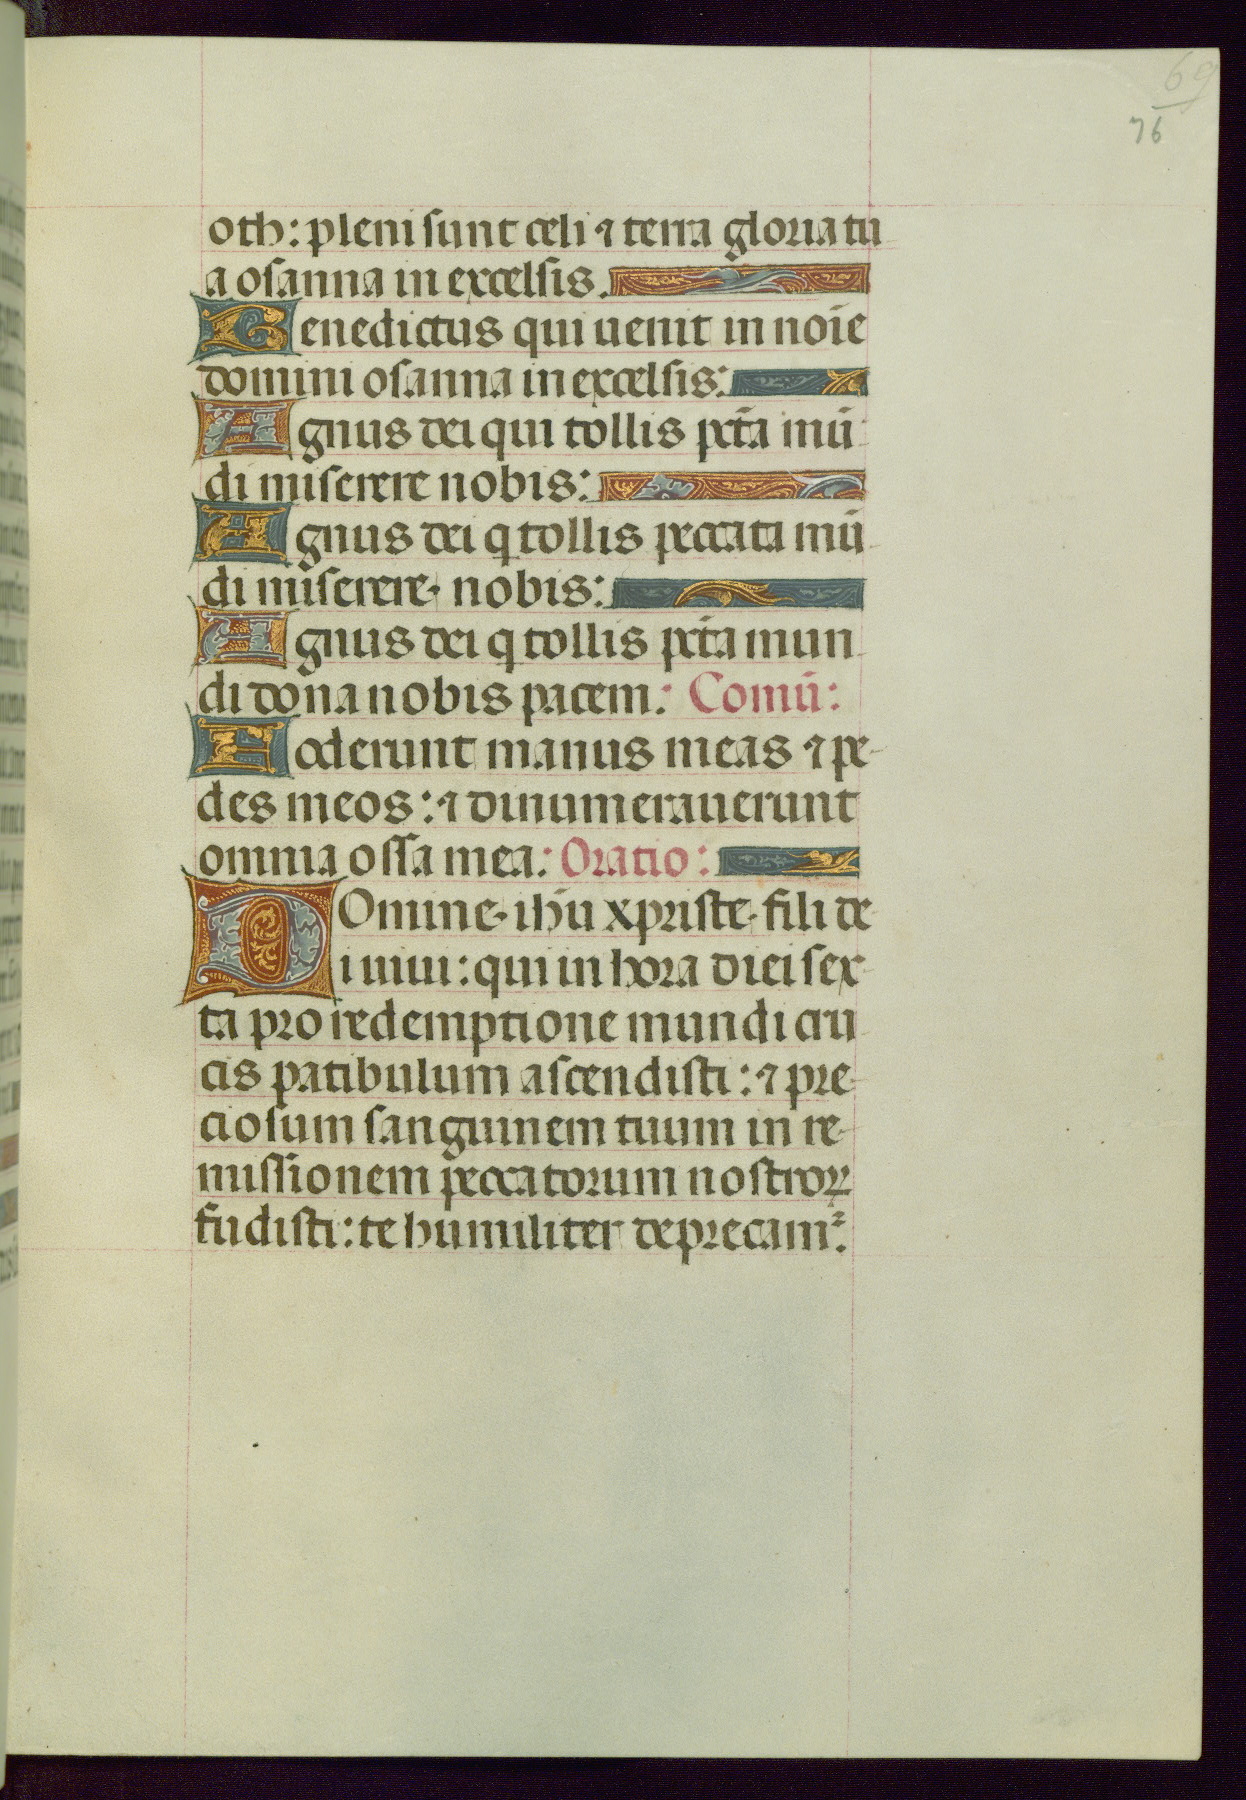 69
76
oth: pleni sunt celi ⁊ terra gloria tu
a osanna in excelsis.
Benedictus qui uenit in noīe
domini osanna in excelsis:
Agnus dei qui tollis pctā mū
di miserere nobis:
Agnus dei q tollis peccata mū
di miserere nobis:
Agnus dei q tollis pctā mun
di dona nobis pacem: Comū:
Foderunt manus meas ⁊ pe-
des meos: ⁊ dinumerauerunt
omnia ossa mea: Oratio:
DOmine ihū xpriste fili de
i uiui: qui in hora diei sex
ta pro redemptione mundi cru
cis patibulum ascendisti: ⁊ pre
ciosum sanguinem tuum in re-
missionem peccatorum nostroꝝ
fudisti: te humiliter deprecam᷑: